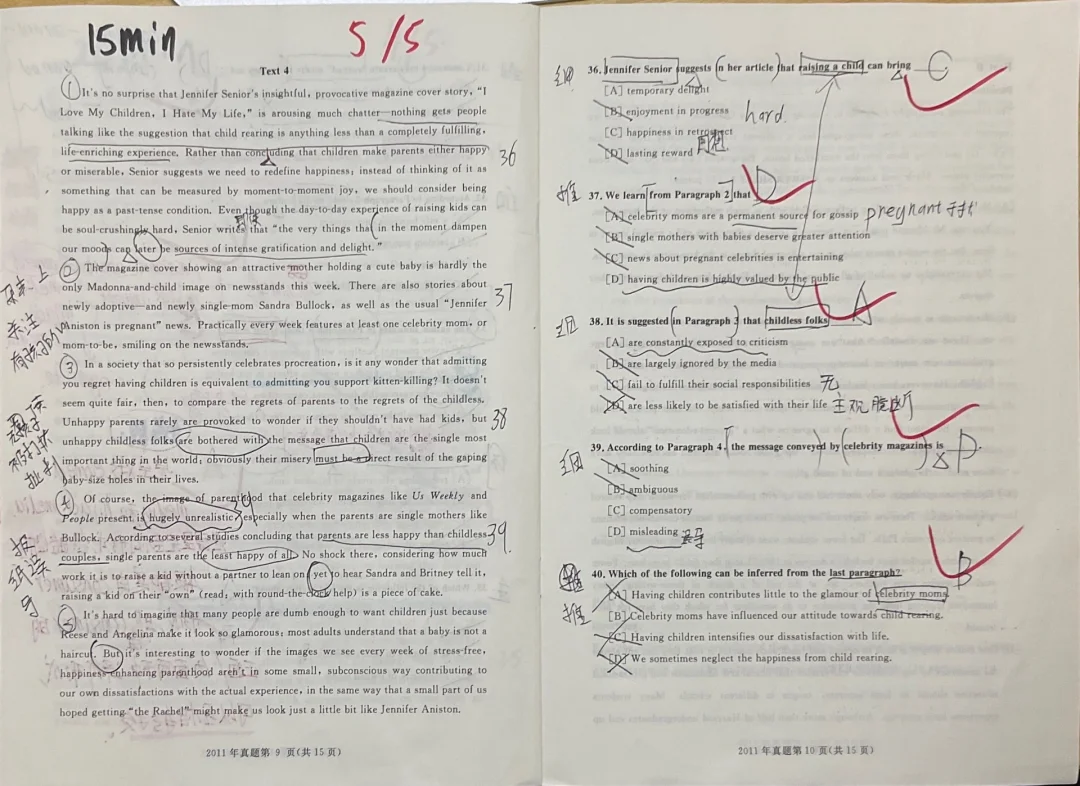 15min
5/5
Text 4
① It's no surprise that Jennifer Senior's insightful, provocative magazine cover story, "I
Love My Children, I Hate My Life," is arousing much chatter—nothing gets people
talking like the suggestion that child rearing is anything less than a completely fulfilling,
life-enriching experience. Rather than concluding that children make parents either happy
36
or miserable, Senior suggests we need to redefine happiness: instead of thinking of it as
something that can be measured by moment-to-moment joy, we should consider being
happy as a past-tense condition. Even though the day-to-day experience of raising kids can
be soul-crushingly hard, Senior writes that "the very things that in the moment dampen
our moods can later be sources of intense gratification and delight."
② The magazine cover showing an attractive mother holding a cute baby is hardly the
only Madonna-and-child image on newsstands this week. There are also stories about
newly adoptive—and newly single—mom Sandra Bullock, as well as the usual "Jennifer
37
Aniston is pregnant" news. Practically every week features at least one celebrity mom, or
mom-to-be, smiling on the newsstands.
关注
③ In a society that so persistently celebrates procreation, is it any wonder that admitting
you regret having children is equivalent to admitting you support kitten-killing? It doesn't
seem quite fair, then, to compare the regrets of parents to the regrets of the childless.
Unhappy parents rarely are provoked to wonder if they shouldn't have had kids, but
38
unhappy childless folks are bothered with the message that children are the single most
important thing in the world; obviously their misery must be a direct result of the gaping
baby-size holes in their lives.
④ Of course, the image of parenthood that celebrity magazines like Us Weekly and
39
People present is hugely unrealistic, especially when the parents are single mothers like
Bullock. According to several studies concluding that parents are less happy than childless
39
couples, single parents are the least happy of all. No shock there, considering how much
work it is to raise a kid without a partner to lean on; yet to hear Sandra and Britney tell it,
raising a kid on their "own" (read: with round-the-clock help) is a piece of cake.
报纸误导
⑤ It's hard to imagine that many people are dumb enough to want children just because
Reese and Angelina make it look so glamorous: most adults understand that a baby is not a
haircut. But it's interesting to wonder if the images we see every week of stress-free,
happiness-enhancing parenthood aren't in some small, subconscious way contributing to
our own dissatisfactions with the actual experience, in the same way that a small part of us
hoped getting "the Rachel" might make us look just a little bit like Jennifer Aniston.
2011年真题第 9 页(共15页)
细 36. Jennifer Senior suggests in her article that raising a child can bring C
[A] temporary delight
[B] enjoyment in progress hard.
[C] happiness in retrospect
[D] lasting reward
推 37. We learn from Paragraph 2 that D
[A] celebrity moms are a permanent source for gossip pregnant
[B] single mothers with babies deserve greater attention
[C] news about pregnant celebrities is entertaining
[D] having children is highly valued by the public
细 38. It is suggested in Paragraph 3 that childless folks A
[A] are constantly exposed to criticism
[B] are largely ignored by the media
[C] fail to fulfill their social responsibilities 无
[D] are less likely to be satisfied with their life 主观臆断
细 39. According to Paragraph 4, the message conveyed by celebrity magazines is D.
[A] soothing
[B] ambiguous
[C] compensatory
[D] misleading 误导
推 40. Which of the following can be inferred from the last paragraph? B
[A] Having children contributes little to the glamour of celebrity moms.
[B] Celebrity moms have influenced our attitude towards child rearing.
[C] Having children intensifies our dissatisfaction with life.
[D] We sometimes neglect the happiness from child rearing.
2011年真题第 10 页(共15页)